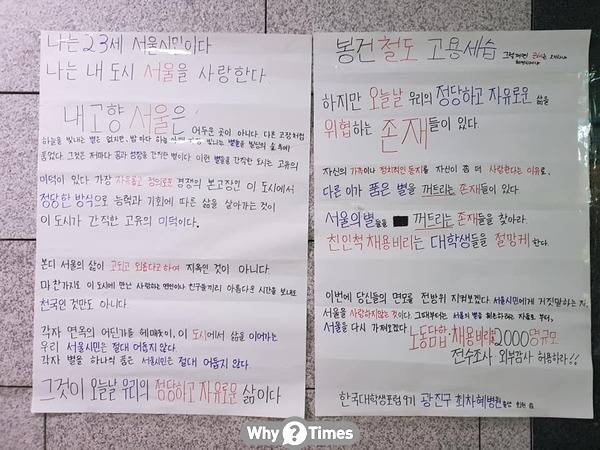 나는 23세 서울시민이다
나는 내 도시 서울을 사랑한다
내 고향 서울은 어두운 곳이 아니다. 다른 고장처럼
하늘을 빛내는 별은 없지만, 밤 마다 하늘 빛내는 별들을 빌딩의 숲 속에
품었다. 그것은 저마다 꿈과 희망을 간직한 별이다 이런 별들을 간직한 도시는 고유의
미덕이 있다 가장 자유롭고 정의로운 경쟁의 본고장인 이 도시에서
정당한 방식으로 능력과 기회에 따른 삶을 살아가는 것이
이 도시가 간직한 고유의 미덕이다.
본디 서울의 삶이 고되고 외롭다고 하여 지옥인 것이 아니다
마찬가지로 이 도시에서 만난 사랑하는 연인이나 친구들끼리 아름다운 시간을 보내도
천국인 것만도 아니다
각자 연옥의 어딘가를 헤매듯이, 이 도시에서 삶을 이어가는
우리 서울시민은 절대 어둡지 않다.
각자 별을 하나씩 품은 서울시민은 절대 어둡지 않다.
그것이 오늘날 우리의 정당하고 자유로운 삶이다
봉건 철도 고용세습
하지만 오늘날 우리의 정당하고 자유로운 삶을
위협하는 존재들이 있다
자신의 가족이나 정치적인 동지를 자신이 좀 더 사랑한다는 이유로,
다른 이가 품은 별을 꺼트리는 존재들이 있다.
서울의 별들을 꺼트리는 존재들을 찾아라.
친인척 채용비리는 대학생들을 절망케 한다.
이번에 당신들의 면모를 전방위 지켜보겠다. 서울시민에게 거짓말하는 자,
서울을 사랑하지 않는 것이다. 그대부터는 서울의 별을 훼손하는 자들로 부터,
서울을 다시 가져오겠다. 노동담합·채용비리 2000명규모
전수조사 외부감사 허용하라!!
한국대학생포럼 9기 광진구 회차혜병원
Why?Times